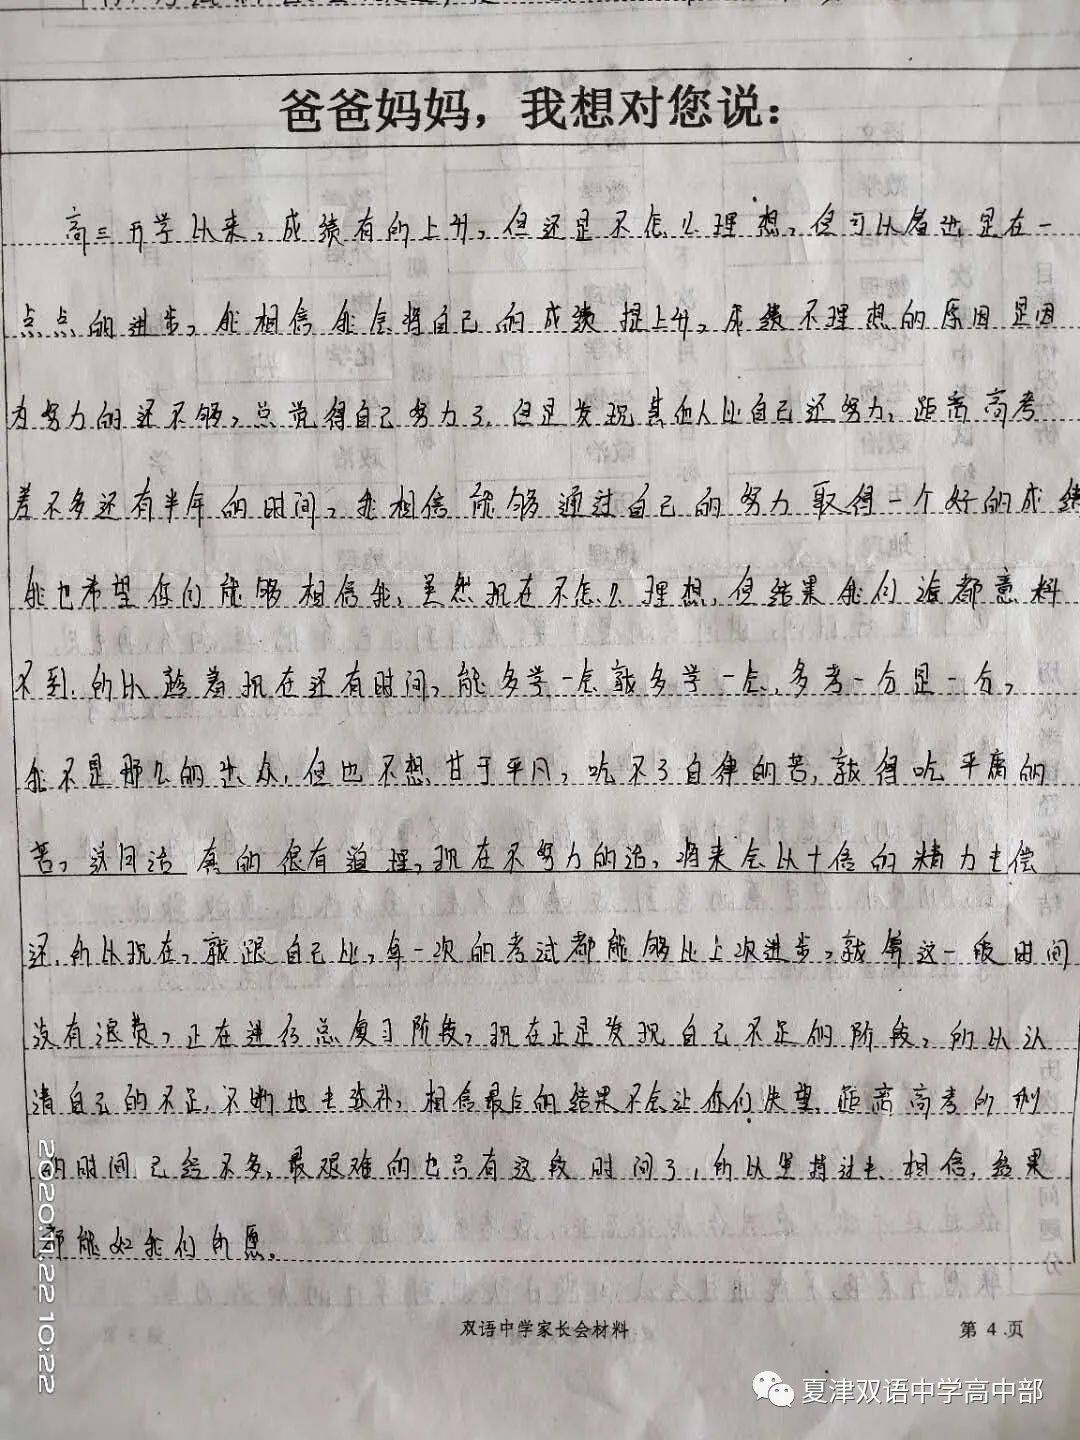 爸爸妈妈，我想对您说：
高三开学以来，成绩有所上升，但还是不怎么理想，但可以看进是在一
点点的进步，我相信我会将自己的成绩提上升，成绩不理想的原因是因
为努力的还不够，总觉得自己努力了，但是发现其他人比自己还努力，距离高考
差不多还有半年的时间，我相信能够通过自己的努力取得一个好的成绩
我也希望你们能够相信我，虽然现在不怎么理想，但结果我们谁都意料
不到，所以趁着现在还有时间，能多学一点就多学一点，多考一分是一分，
我不是那么的出众，但也不想甘于平凡，吃不了自律的苦，就得吃平庸的
苦，这句话真的很有道理，现在不努力的话，将来会以十倍的精力去偿
还，所以现在，就跟自己比，每一次的考试都能够比上次进步，就算这一段时间
没有浪费，正在进行总复习阶段，现在正是发现自己不足的阶段，所以认
清自己的不足，不断地去弥补，相信最后的结果不会让你们失望，距离高考所剩
的时间已经不多，最艰难的也只有这段时间了，所以坚持过去，相信，结果
都能如我们所愿。
双语中学家长会材料 第 4 页
2020.11.22 10:22
夏津双语中学高中部